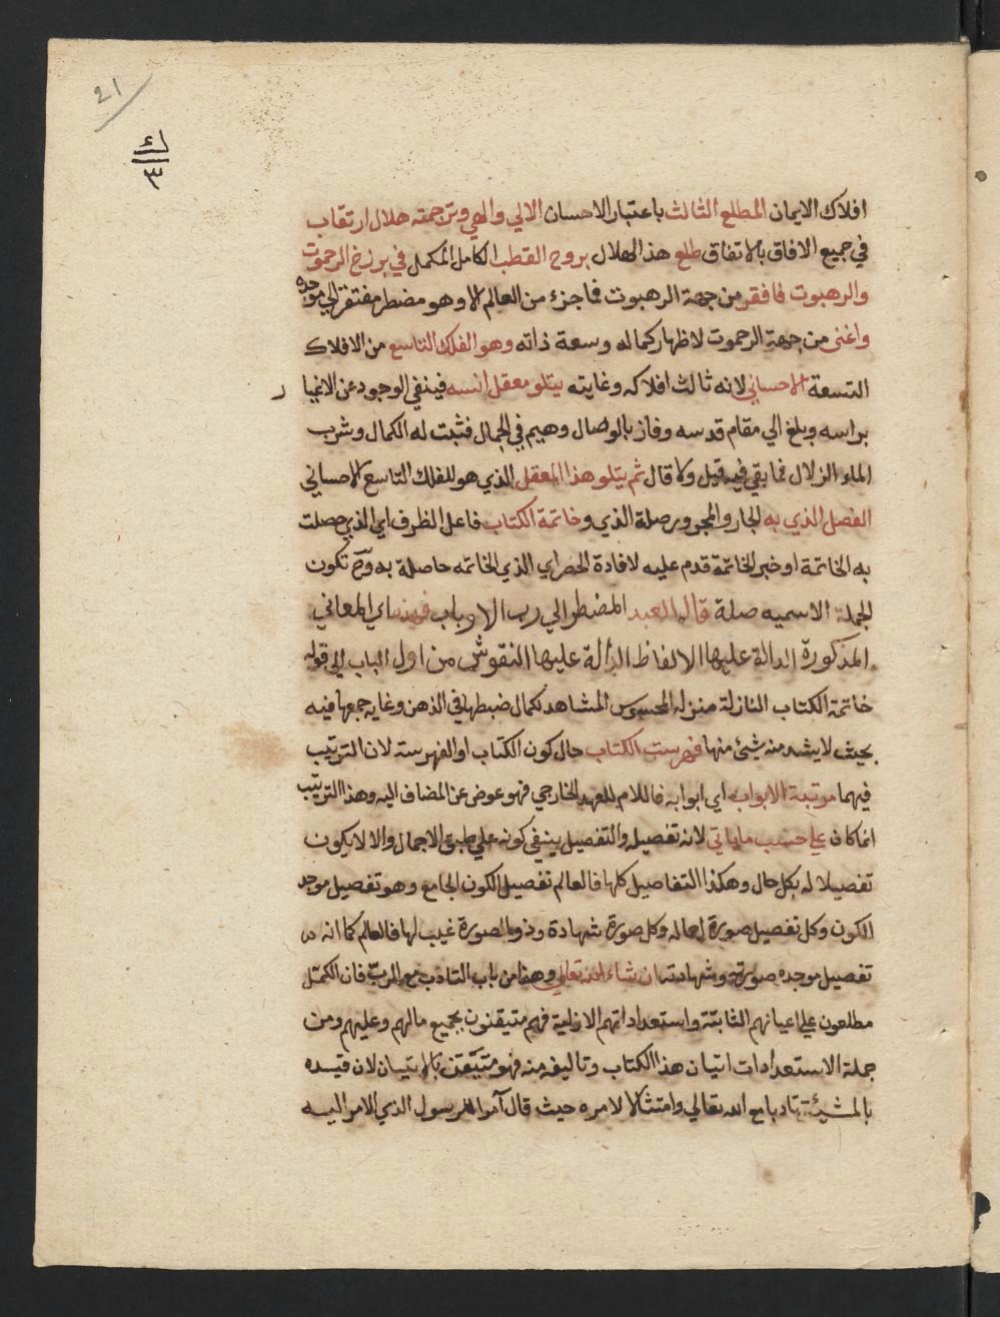 21
ك
٣
افلاك الايمان المطلع الثالث باعتبار الاحسان الالي والهي وترجمته هلال ارتقاب
في جميع الافاق بالاتفاق طلع هذا الهلال بروح القطب الكامل المكمل في برزخ الرحموت
والرهبوت فافقر من جهة الرهبوت فما جزء من العالم الا وهو مضطر مفتقر الي موجده
واغنى من جهة الرحموت لاظهار كماله وسعة ذاته وهو الفلك التاسع من الافلاك
التسعة الاحساني لانه ثالث افلاكه وغايته يتلو معقل انسه فينفي الوجود عن الاغيا ر
براسه وبلغ الي مقام قدسه وفاز بالوصال وهيم في الجمال فثبت له الكمال وشرب
الماء الزلال فما بقي فيه قيل ولا قال ثم يتلو هذا المعقل الذي هو للفلك التاسع الاحساني
الفصل الذي به الجار والمجرور صلة الذي وخاتمة الكتاب فاعل الظرف اي الذي حصلت
به الخاتمة او خبر الخاتمة قدم عليه لافادة الحصر اي الذي الخاتمه حاصلة به وح تكون
الجملة الاسميه صلة قال العبد المضطر الي رب الارباب فهذه اي المعاني
المذكورة الدالة عليها الالفاظ الدالة عليها النقوش من اول الباب الي قوله
خاتمة الكتاب النازلة منزله المحسوس المشاهد لكمال ضبطها في الذهن وغايه جمعها فيه
بحيث لا يشد منه شيئ منها فهرست الكتاب حال كون الكتاب او الفهرسته لان الترتيب
فيهما مرتبة الابواب اي ابوابه فاللام للعهد الخارجي فهو عوض عن المضاف اليه وهذا الترتيب
انما كان علي حسب ما ياتي لانه تفصيله والتفصيل ينبغي كونه علي طبق الاجمال والا لا يكون
تفصيلا له بكل حال وهكذا التفاصيل كلها فالعالم تفصيل الكون الجامع وهو تفصيل موجد
الكون وكل تفصيل صورة اجماله وكل صورة شهادة وذو الصورة غيب لها فالعالم كما انه
تفصيل موجده صورته وشهادته ان شاء الله تعالي وهذا من باب التادب مع الرب فان الكمّل
مطلعون علي اعيانهم الثابتة واستعداداتهم الازلية فهم متيقنون بجميع مالهم وعليهم ومن
جملة الاستعدادات اتيان هذا الكتاب وتاليفه منه فهو متيقن بالاتيان لان قيده
بالمشيئة تادبا مع الله تعالي وامتثالا لامره حيث قال آمرا للرسول الذي الامر اليه